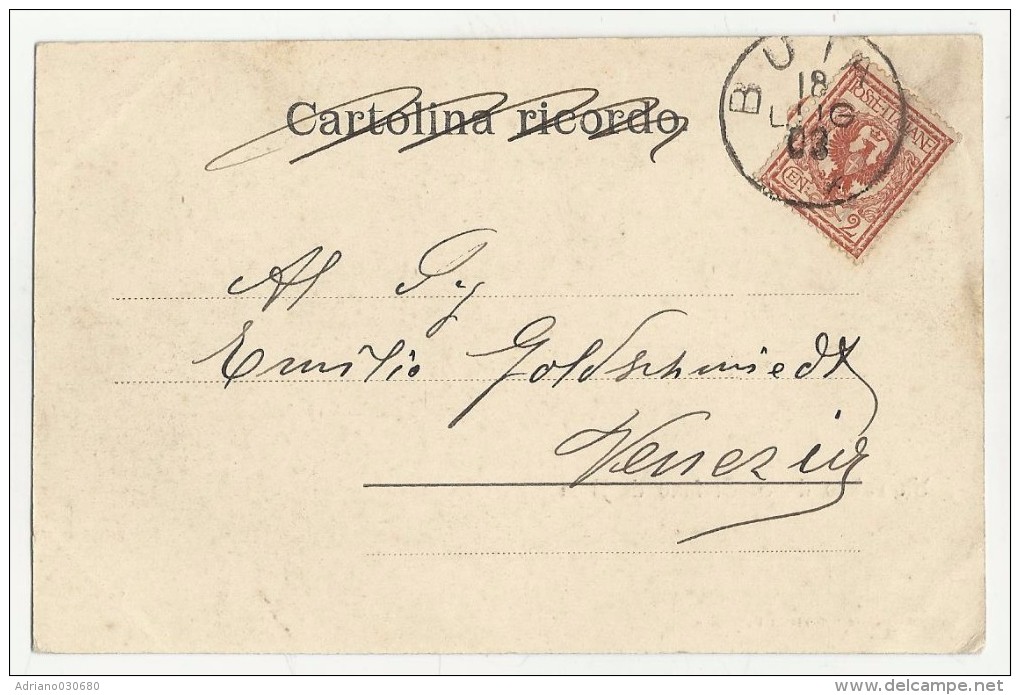 BUIA
18
LUG
03
POSTE ITALIANE
CENT 2
Cartolina ricordo.
Al Sig
Emilio Goldschmiedt
Venezia
Adriano030680
delcampe.net